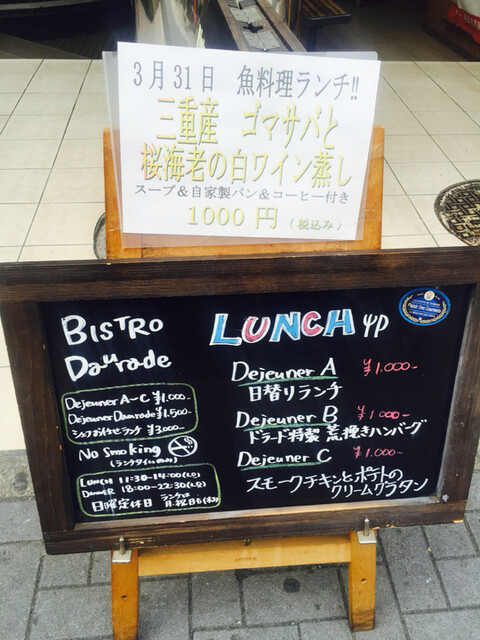 3月31日 魚料理ランチ!!
三重産 ゴマサバと
桜海老の白ワイン蒸し
スープ&自家製パン&コーヒー付き
1000円 (税込み)
BISTRO
Daurade
LUNCH
Dejeuner A ¥1.000-
日替りランチ
Dejeuner B ¥1000-
ドラード特製 荒挽きハンバーグ
Dejeuner C ¥1.000-
スモークチキンとポテトの
クリームグラタン
Dejeuner A~C ¥1.000-
Dejeuner Daurade ¥1.500-
シェフおまかせランチ ¥3.000-
No Smoking
(ランチタイムのみ)
LUNCH 11:30-14:00(L.O)
DINNER 18:00-22:30(L.O)
日曜定休日 ランチは月.祝日も(休み)